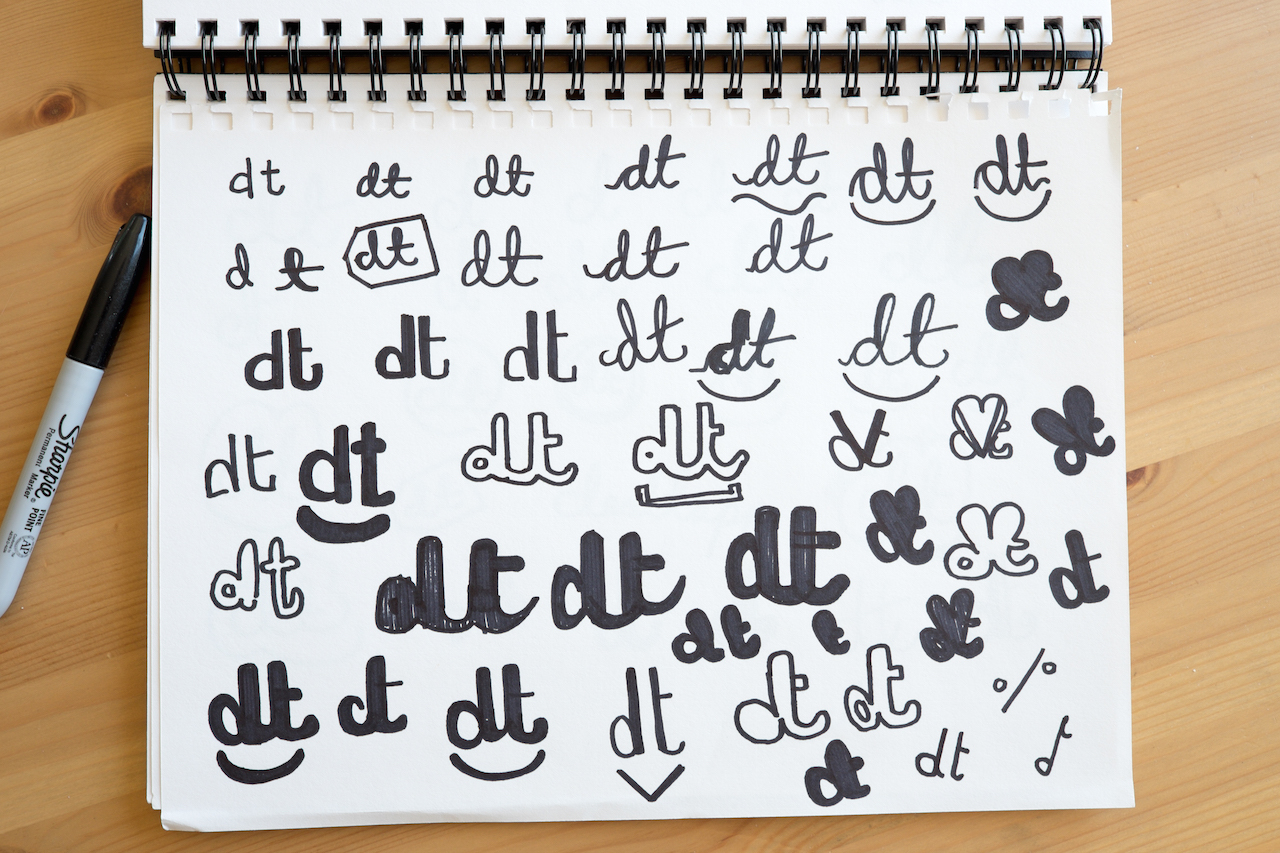 dt dt dt dt dt dt dt
d t dt dt dt dt
dt
dt dt dt dt dt dt
dt dt dt dt dt dt dt
dt dt dt dt dt dt dt
dt t dt
dt dt dt dt dt dt
dt dt
Sharpie
Permanent Marker
FINE POINT
AP